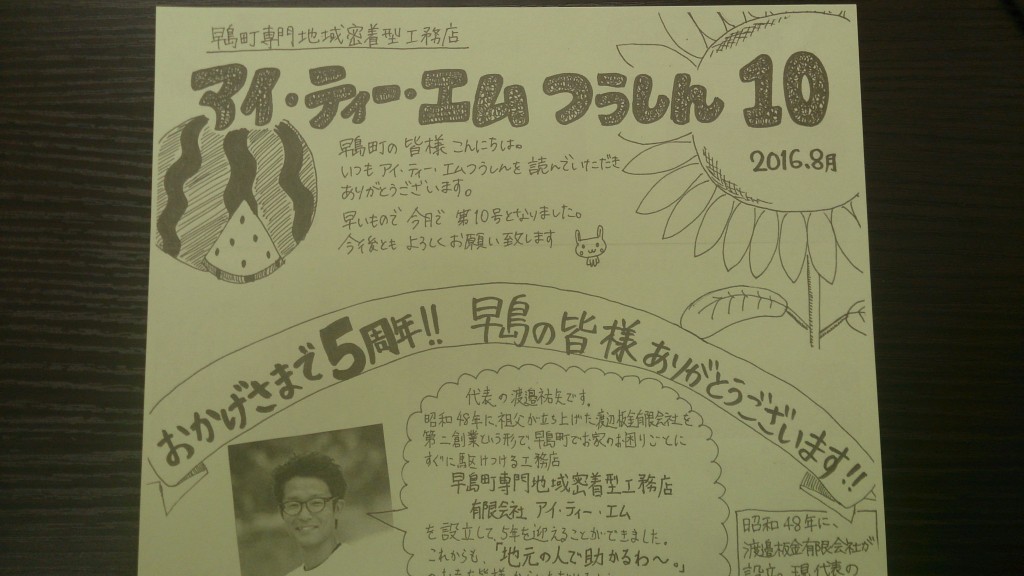 早島町専門地域密着型工務店
アイ・ティー・エムつうしん 10
2016.8月
早島町の皆様こんにちは。
いつもアイ・ティー・エムつうしんを読んでいただき
ありがとうございます。
早いもので今月で第10号となりました。
今後ともよろしくお願い致します
おかげさまで5周年!! 早島の皆様ありがとうございます!!
代表の渡邉祐矢です。
昭和48年に祖父が立ち上げた渡辺板金有限会社を
第二創業という形で、早島町でお家のお困りごとに
すぐに駆けつける工務店
早島町専門地域密着型工務店
有限会社アイ・ティー・エム
を設立して、5年を迎えることができました。
これからも、「地元の人で助かるわ〜。」
昭和48年に、
渡邉板金有限会社が
設立。現代表の